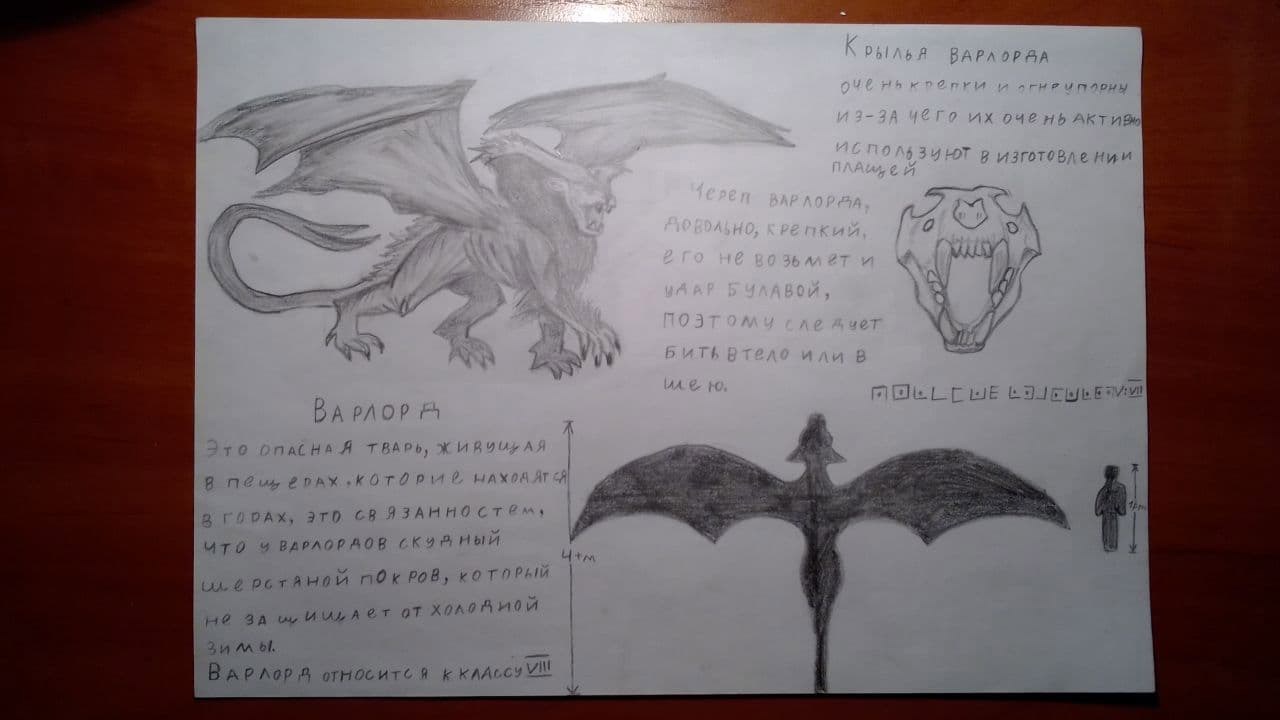 Крылья варлорда
очень крепки и огнеупорны
из-за чего их очень активно
используют в изготовлении
плащей
Череп варлорда,
довольно, крепкий,
его не возьмет и
удар булавой,
поэтому следует
бить в тело или в
шею.
Варлорд
Это опасная тварь, живущая
в пещерах. которие находятся
в горах, это связанностем,
что у варлордов скудный
шерстяной покров, который
не защищает от холодной
зимы.
Варлорд относится к классу VIII
4+м